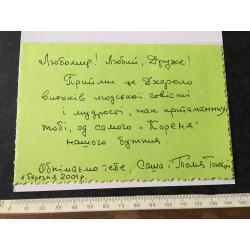 Любомир! Любий, Друже!
Прийми це Джерело
витоків людської совісті
і мудрості, так притаманних
тобі, од самого "Кореня"
нашого буття.
Обнімаємо тебе, Саша і Толя
1 березня 2001 р.